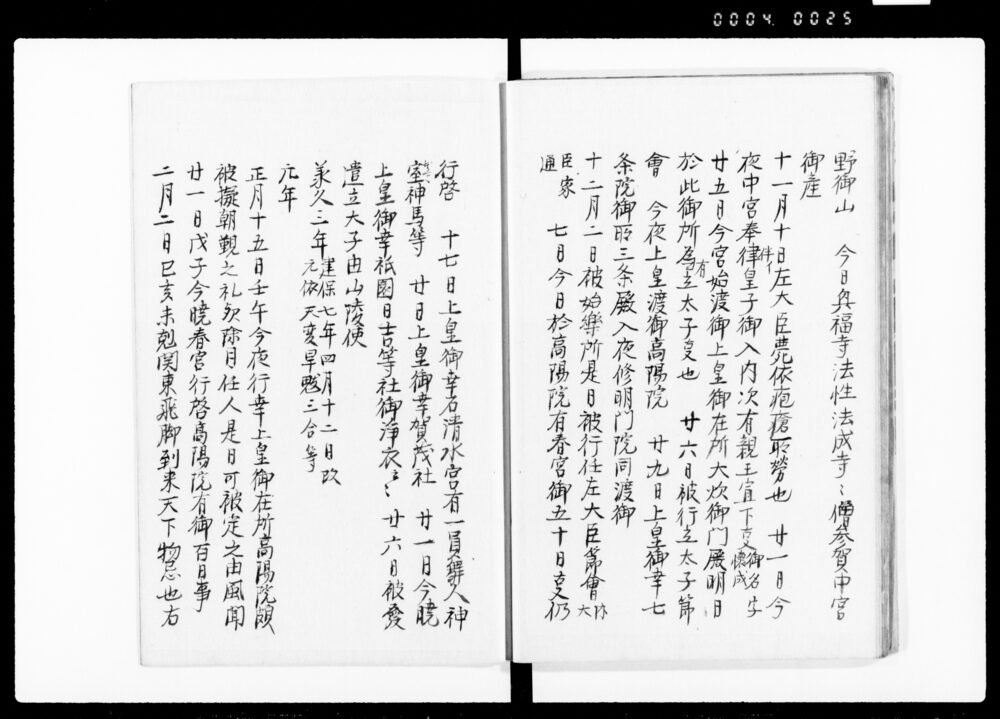 0004 0025
野御山　今日興福寺法性法成寺ゝ僧参賀中宮
御産
十一月十日左大臣薨依疱瘡所労也　廿一日今
件イ
夜中宮奉律皇子御入内次有親王宣下事御名字懐成
廿五日今宮始渡御上皇御在所大炊御門殿明日
有
於此御所為立太子事也　廿六日被行立太子節
會　今夜上皇渡御高陽院　廿九日上皇御幸七
条院御所三条殿入夜修明門院同渡御
十二月二日被始樂所是日被行任左大臣節會
臣家通　七日今日於高陽院有春宮御五十日事仍
行啓　十七日上皇御幸石清水宮有一員舞人神
室神馬等　廿日上皇御幸賀茂社　廿一日今暁
上皇御幸祇園日吉等社御浄衣云々　廿六日被發
遣立太子由山陵使
承久三年建保七年四月十二日改
元依天変旱魃三合等
元年
正月十五日壬午今夜行幸上皇御在所高陽院頗
被擬朝覲之礼欤除目任人是日可被定之由風聞
廿一日戊子今暁春宮行啓高陽院有御百日事
二月二日己亥未剋関東飛脚到来天下物忌也右